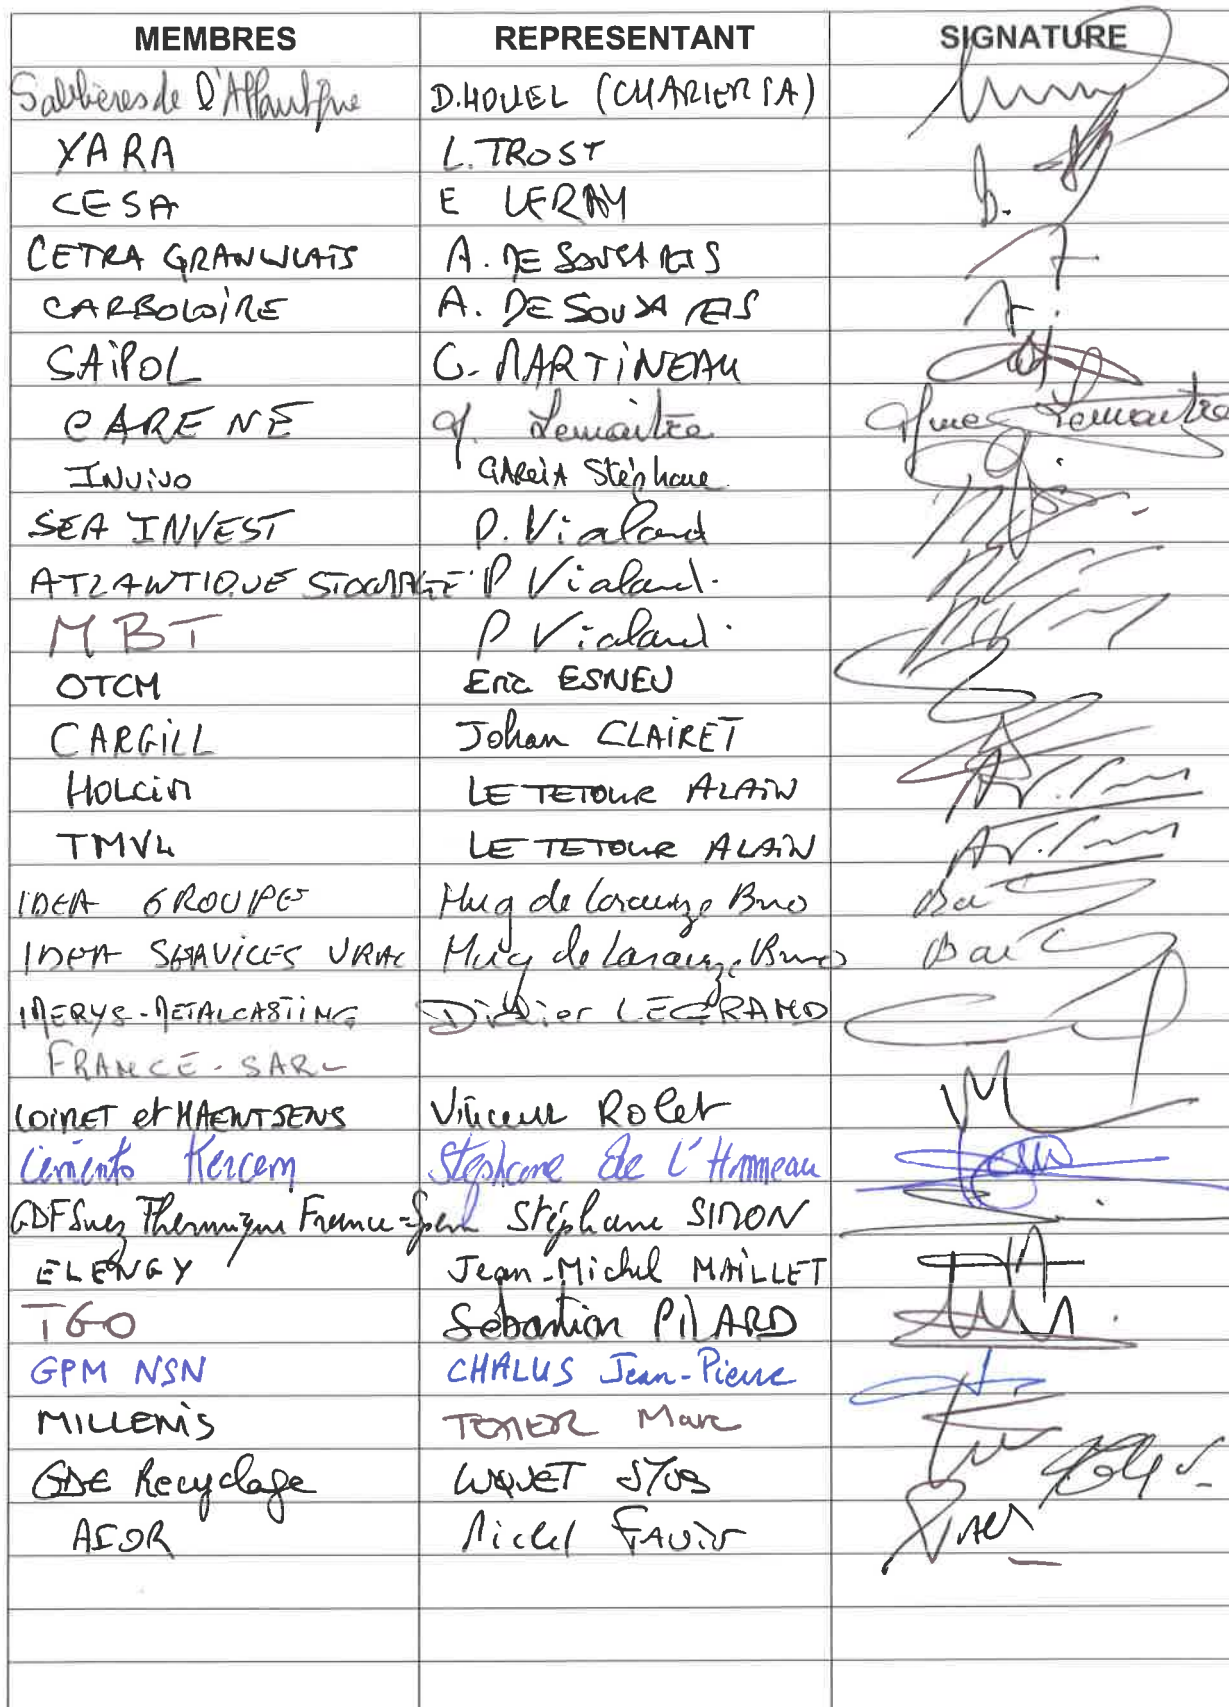 MEMBRES REPRESENTANT SIGNATURE
Sablières de l'Atlantique D.HOUEL (CHARIER SA)
YARA L. TROST
CESA E LERAY
CETRA GRANULATS A. DE SOUSA REIS
CARBOLOiRE A. DE SOUSA REIS
SAiPOL G. MARTiNEAU
CARENE J. Lemaitre Lemaitre
INViVO GARCiA Stéphane
SEA INVEST P. Vialard
ATLANTIQUE STOCKAGE P Vialard.
MBT P Vialard.
OTCM Eric ESNEU
CARGiLL Johan CLAiRET
HOLCiM LE TETOUR ALAiN
TMV4 LE TETOUR ALAiN
IDEA GROUPE Hug de Larauze Bruno
IDEA SERVICES VRAC Hug de Larauze Bruno
IMERYS-METALCASTING Didier LEGRAND
FRANCE - SARL
LOIRET et HAENTJENS Vincent Rolet
Ciments Kercem Stéphane de L'Hommeau
GDF Suez Thermique France - Stéphane SIMON
ELENGY Jean-Michel MAiLLET
TGO Sébastien PILARD
GPM NSN CHALUS Jean-Pierre
MILLENiS TEXIER Marc
GDE Recyclage
Michel